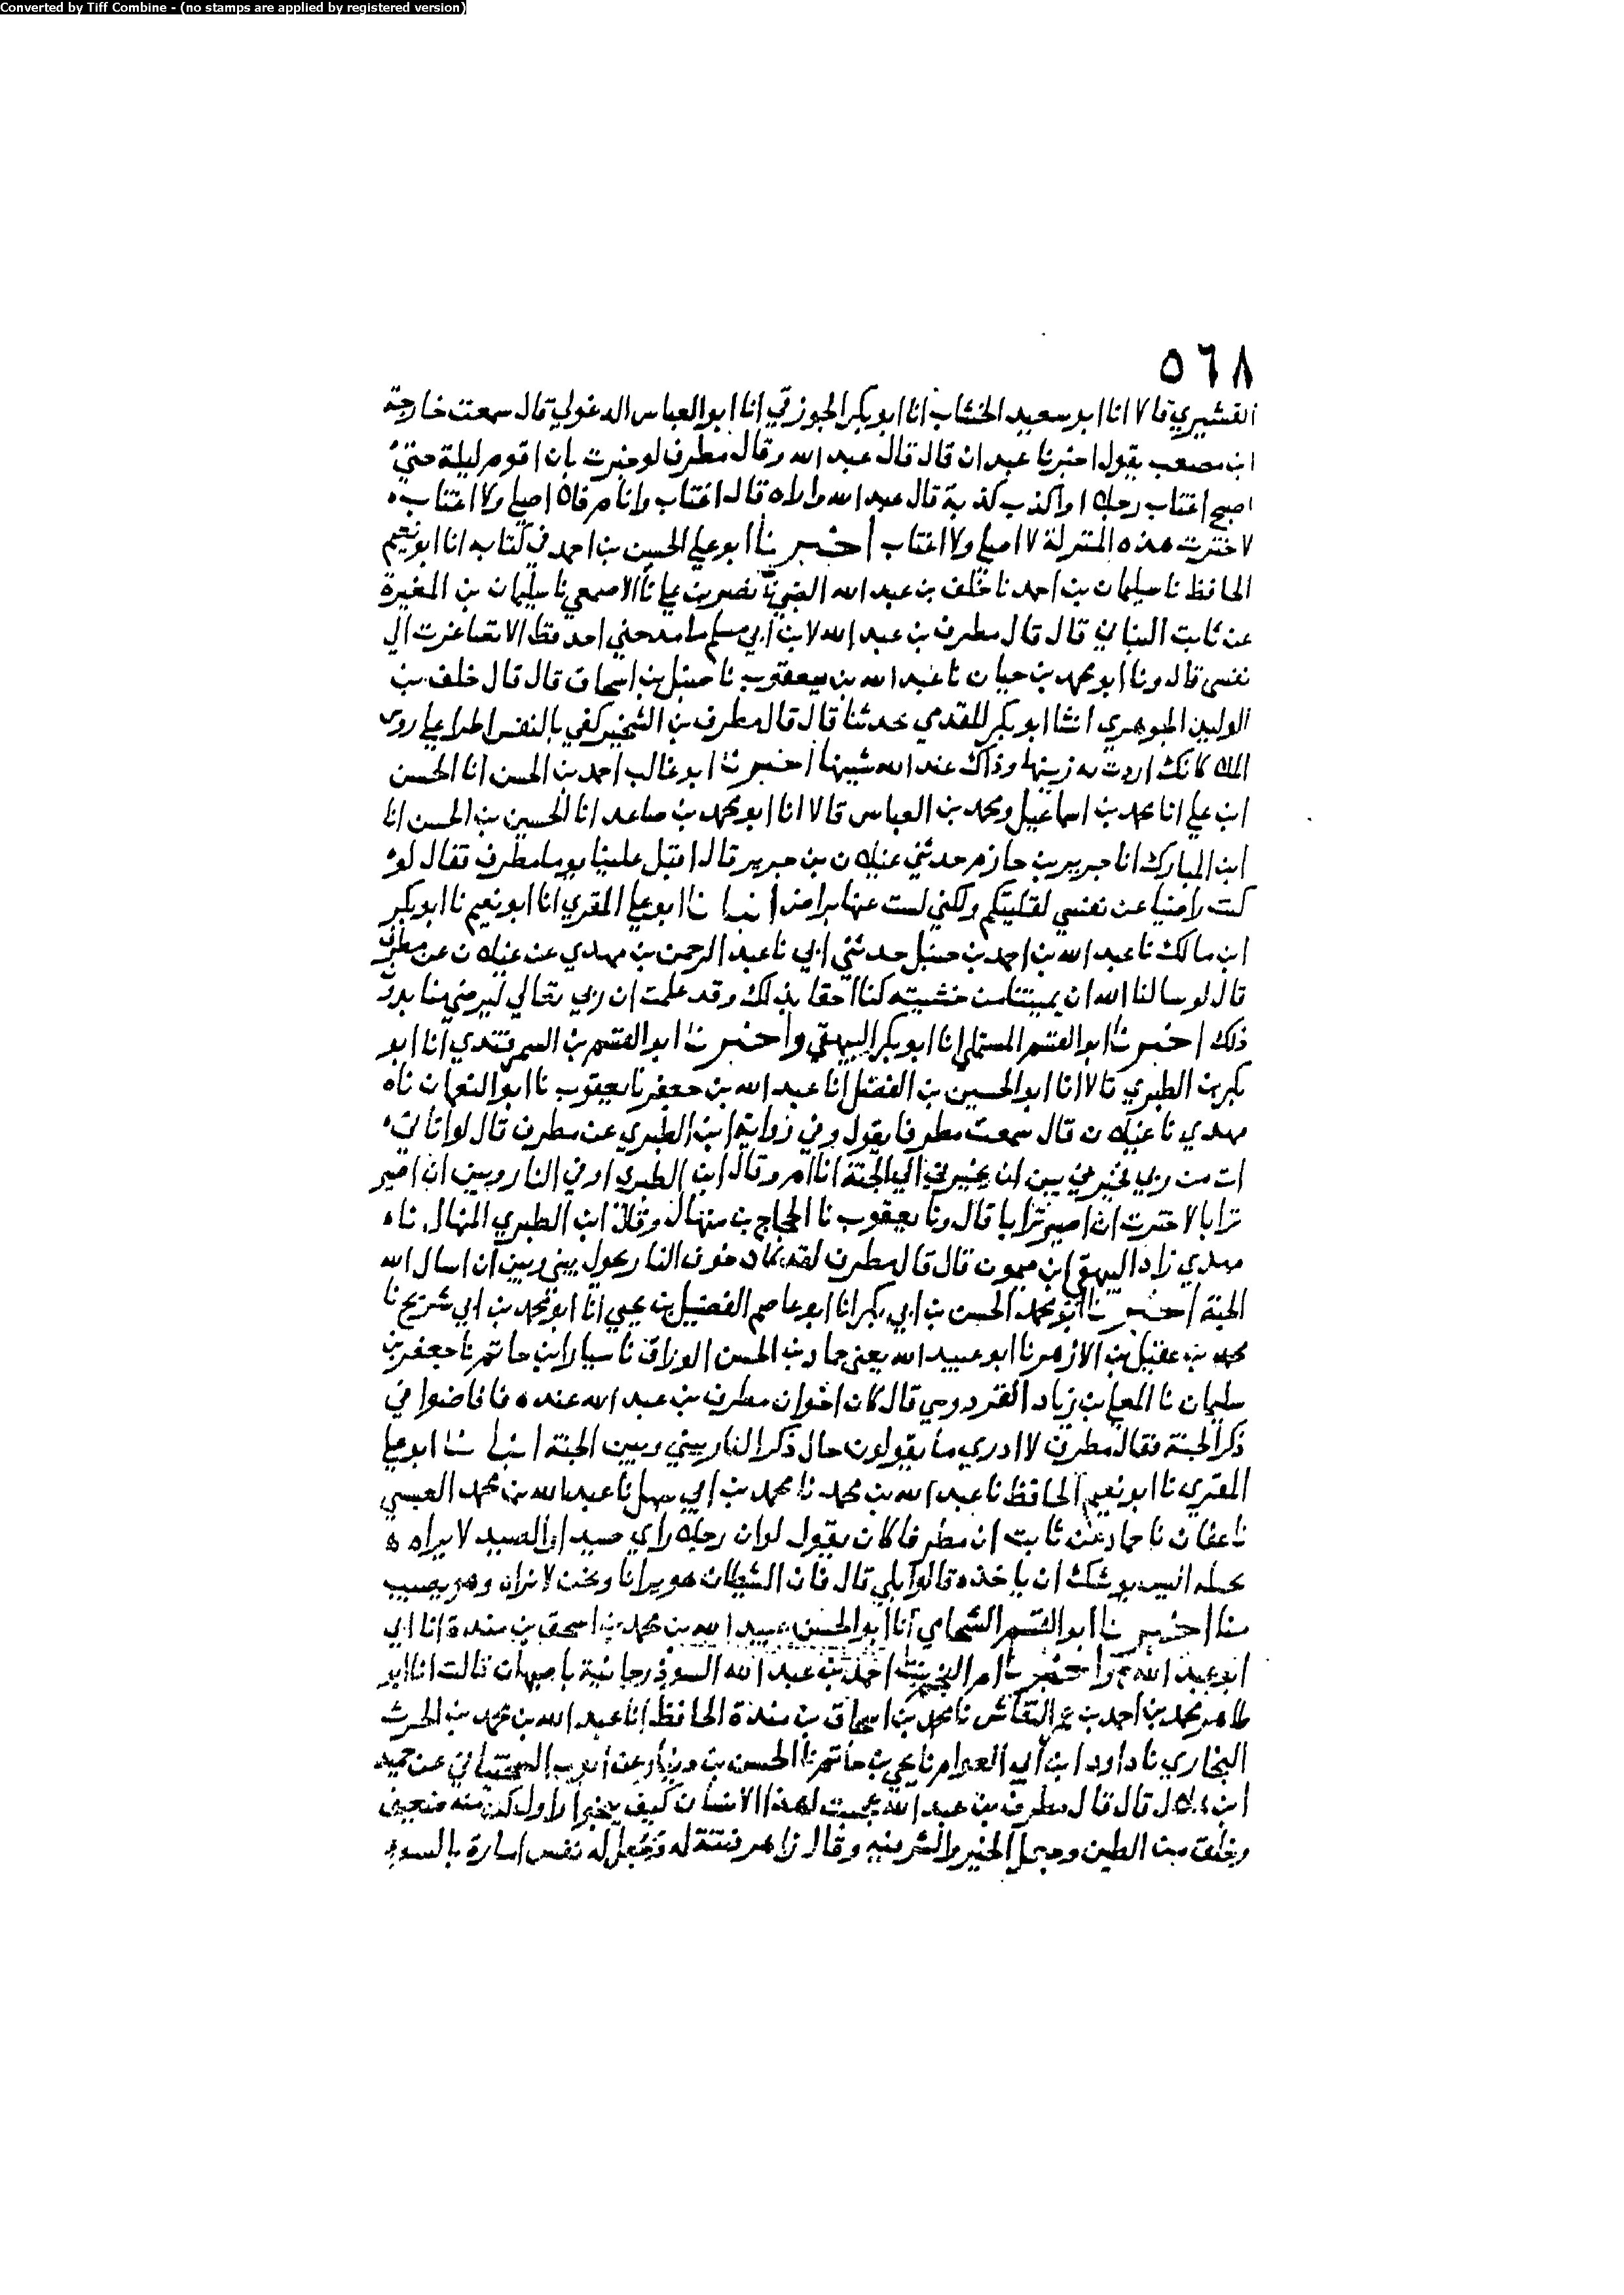 Converted by Tiff Combine - (no stamps are applied by registered version)
٥٦٨
القشيري قالا انا ابو سعيد الخشاب انا ابو بكر الجوزقي انا ابو العباس الدغولي قال سمعت خارجة
ابن مصعب يقول اخبرنا عبدان قال قال عبد الله وقال مطرف لو خيرت بان اقوم ليلة حتى
اصبح اغتاب رجلا او اكذب كذبة قال عبد الله والاه قال اغتاب وانام فلا اصلي ولا اغتاب
لاخترت هذه المنزلة لا اصلي ولا اغتاب اخبرنا ابو علي الحسن بن احمد في كتابه انا ابو نعيم
الحافظ نا سليمان بن احمد نا خلف بن عبد الله الضبي نا نصر بن علي نا الاصمعي نا سليمان بن المغيرة
عن ثابت البناني قال قال مطرف بن عبد الله لابن ابي مسلم ما مدحني احد قط الا تصاغرت الي
نفسي قال ونا ابو محمد بن حيان نا عبد الله بن يعقوب نا حنبل بن اسحاق قال قال خلف بن
الوليد الجوهري انشا ابو بكر المقدمي يحدثنا قال قال مطرف بن الشخير كفي بالنفس اطرا علي روس
الملا كانك اردت به زينها وذاك عند الله شينها اخبرنا ابو غالب احمد بن الحسن انا الحسن
ابن علي انا محمد بن اسماعيل ومحمد بن العباس قالا انا ابو محمد بن صاعد انا الحسين بن الحسن انا
ابن المبارك انا جرير بن حازم حدثني غيلان بن جرير قال اقبل علينا يوما مطرف فقال لو
كنت راضيا عن نفسي لقليتكم ولكني لست عنها براض انبانا ابو علي المقري انا ابو نعيم نا ابو بكر
ابن مالك نا عبد الله بن احمد بن حنبل حدثني ابي نا عبد الرحمن بن مهدي عن غيلان عن مطرف
قال لو سالنا الله ان يميتنا من خشيته كنا احقا بذلك وقد علمت ان ربي تعالي ليرضي منا بدون
ذلك اخبرنا ابو القسم المستملي انا ابو بكر البيهقي واخبرنا ابو القسم بن السمرقندي انا ابو
بكر بن الطبري قالا انا ابو الحسين بن الفضل انا عبد الله بن جعفر نا يعقوب نا ابو النعمان نا
مهدي نا غيلان قال سمعت مطرفا يقول وفي رواية ابن الطبري عن مطرف قال لو اتاني
ات من ربي يخيرني بين ان يخبرني الي الجنة انا ام وقال ابن الطبري او في النار وبين ان اصير
ترابا لاخترت ان اصير ترابا قال ونا يعقوب نا الحجاج بن منهال وقال ابن الطبري المنهال نا
مهدي زاد البيهقي ابن ميمون قال قال مطرف لقد كاد خوف النار يحول بيني وبين ان اسال الله
الجنة اخبرنا ابو محمد الحسن بن ابي بكر انا ابو عاصم الفضيل بن يحيي انا ابو محمد بن ابي شريح نا
محمد بن عقيل بن الازهر نا ابو عبيد الله يعني حماد بن الحسن الوراق نا سيار ابن حاتم نا جعفر بن
سليمان نا المعلي بن زياد القردوسي قال كان اخوان مطرف بن عبد الله عنده فافاضوا في
ذكر الجنة فقال مطرف لا ادري ما يقولون حال ذكر النار بيني وبين الجنة انبانا ابو علي
المقري نا ابو نعيم الحافظ نا عبد الله بن محمد نا محمد بن ابي سهل نا عبد الله بن محمد العبسي
نا عفان نا حماد عن ثابت ان مطرفا كان يقول لو ان رجلا راي صيدا والصيد لا يراه
يختله اليس يوشك ان ياخذه قالوا بلي قال فان الشيطان هو يرانا ونحن لا نراه وهو يصيب
منا اخبرنا ابو القسم الشحامي انا ابو الحسن عبيد الله بن محمد بن اسحق بن مندة انا ابي
ابو عبد الله ح واخبرتنا ام النجم بنت احمد بن عبد الله السوذرجانية باصبهان قالت انا ابو
طاهر محمد بن احمد بن عمر النقاش نا محمد بن اسحاق بن مندة الحافظ انا عبد الله بن محمد بن الحرث
البخاري نا داود ابن ابي العوام نا يحيي بن حاتم نا الحسن بن دينار عن ايوب السختياني عن حميد
ابن هلال قال قال مطرف بن عبد الله عجبت لهذا الانسان كيف ينجوا واول كون منه ضعيف
وخلق من الطين وجعل الخير والشر فيه وقال زاهر فتنة له وجعل له نفس امارة بالسوء